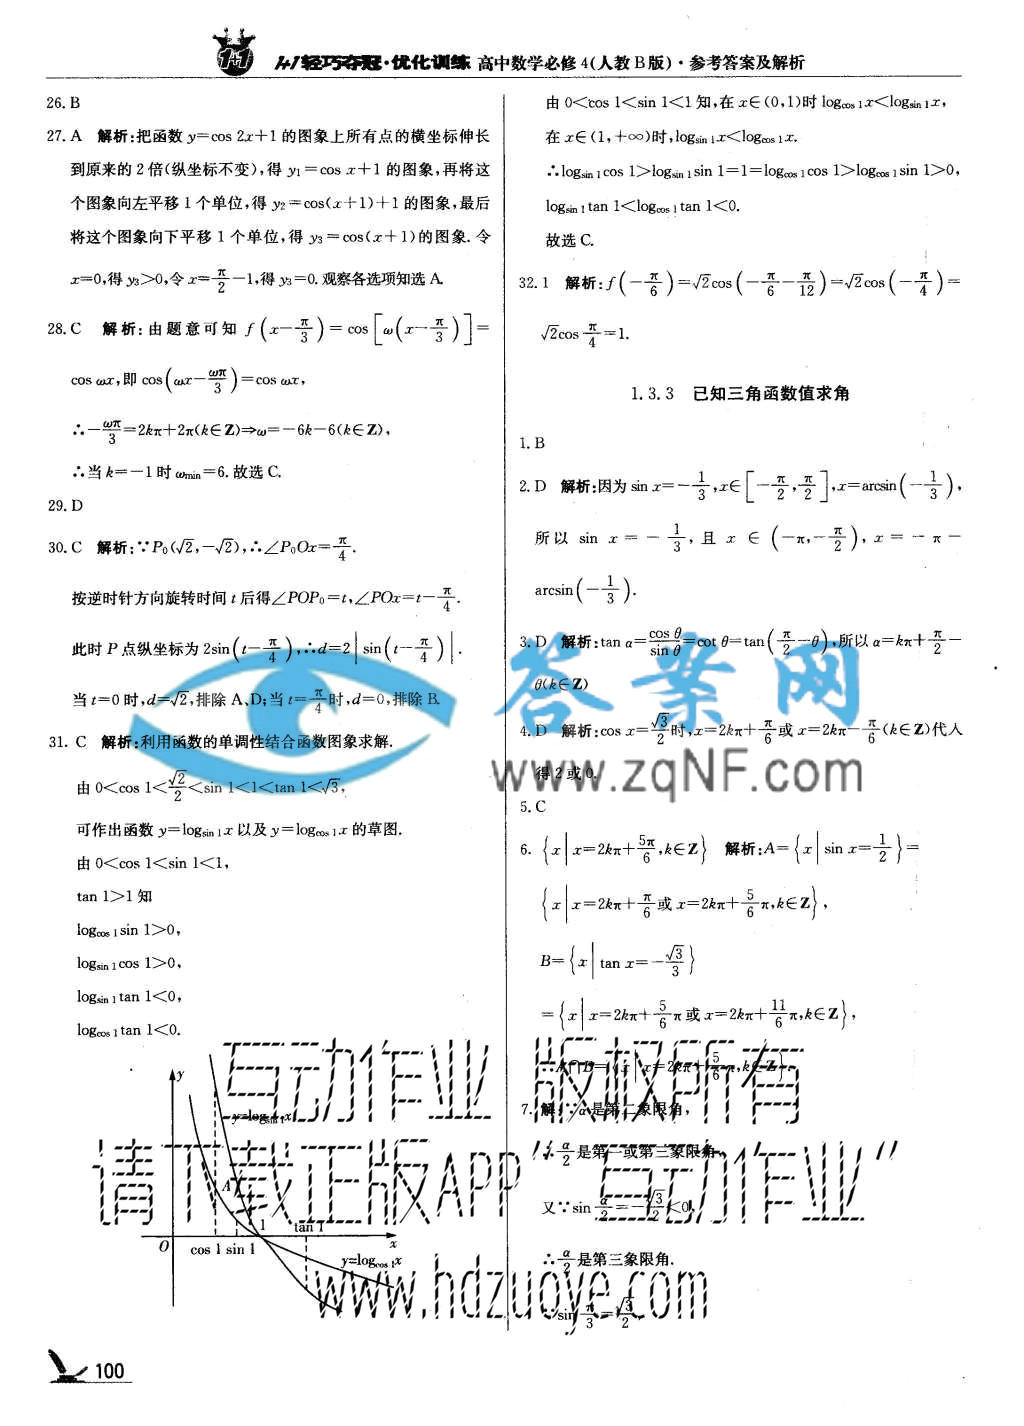 1+1轻巧夺冠·优化训练 高中数学必修4(人教B版)·参考答案及解析
26. B
27. A 解析:把函数 y=cos 2x+1 的图象上所有点的横坐标伸长
到原来的 2 倍(纵坐标不变),得 y₁=cos x+1 的图象,再将这
个图象向左平移 1 个单位,得 y₂=cos(x+1)+1 的图象,最后
将这个图象向下平移 1 个单位,得 y₃=cos(x+1)的图象. 令
x=0,得 y₃>0,令 x=π/2-1,得 y₃=0. 观察各选项知选 A.
28. C 解析:由题意可知 f(x-π/3)=cos[ω(x-π/3)]=
cos ωx,即 cos(ωx-ωπ/3)=cos ωx,
∴-ωπ/3=2kπ+2π(k∈Z)⇒ω=-6k-6(k∈Z),
∴当 k=-1 时 ωmin=6. 故选 C.
29. D
30. C 解析:∵P₀(√2,-√2),∴∠P₀Ox=π/4.
按逆时针方向旋转时间 t 后得∠POP₀=t,∠POx=t-π/4.
此时 P 点纵坐标为 2sin(t-π/4),∴d=2|sin(t-π/4)|.
当 t=0 时,d=√2,排除 A、D;当 t=π/4时,d=0,排除 B.
31. C 解析:利用函数的单调性结合函数图象求解.
由 0<cos 1<√2/2<sin 1<1<tan 1<√3,
可作出函数 y=log_{sin 1} x 以及 y=log_{cos 1} x 的草图.
由 0<cos 1<sin 1<1,
tan 1>1 知
log_{cos 1} sin 1>0,
log_{sin 1} cos 1>0,
log_{sin 1} tan 1<0,
log_{cos 1} tan 1<0.
y
y=log_{sin 1}x
A
1
tan 1
O
cos 1 sin 1
x
y=log_{cos 1}x
100
由 0<cos 1<sin 1<1 知,在 x∈(0,1)时 log_{cos 1} x<log_{sin 1} x,
在 x∈(1,+∞)时,log_{sin 1} x<log_{cos 1} x.
∴log_{sin 1} cos 1>log_{sin 1} sin 1=1=log_{cos 1} cos 1>log_{cos 1} sin 1>0,
log_{sin 1} tan 1<log_{cos 1} tan 1<0.
故选 C.
32. 1 解析:f(-π/6)=√2cos(-π/6-π/12)=√2cos(-π/4)=
√2cos π/4=1.
1.3.3 已知三角函数值求角
1. B
2. D 解析:因为 sin x=-1/3,x∈[-π/2,π/2],x=arcsin(-1/3),
所以 sin x=-1/3,且 x∈(-π,-π/2),x=-π-
arcsin(-1/3).
3. D 解析:tan α=cos θ/sin θ=cot θ=tan(π/2-θ),所以 α=kπ+π/2-
θ(k∈Z)
4. D 解析:cos x=√3/2时,x=2kπ+π/6或 x=2kπ-π/6(k∈Z)代入
得 2 或 0.
5. C
6. {x|x=2kπ+5π/6,k∈Z} 解析:A={x|sin x=1/2}=
{x|x=2kπ+π/6或 x=2kπ+5/6π,k∈Z},
B={x|tan x=-√3/3}
={x|x=2kπ+5/6π或 x=2kπ+11/6π,k∈Z},
∴A∩B={x|x=2kπ+5/6π,k∈Z}.
7. 解:∵α是第二象限角,
∴α/2是第一或第三象限角.
又∵sin α/2=-√3/2<0,
∴α/2是第三象限角.
∵sin π/3=√3/2,
答案网
www.zqNF.com
互动作业 版权所有
请下载正版APP“互动作业”
www.hdzuoye.com